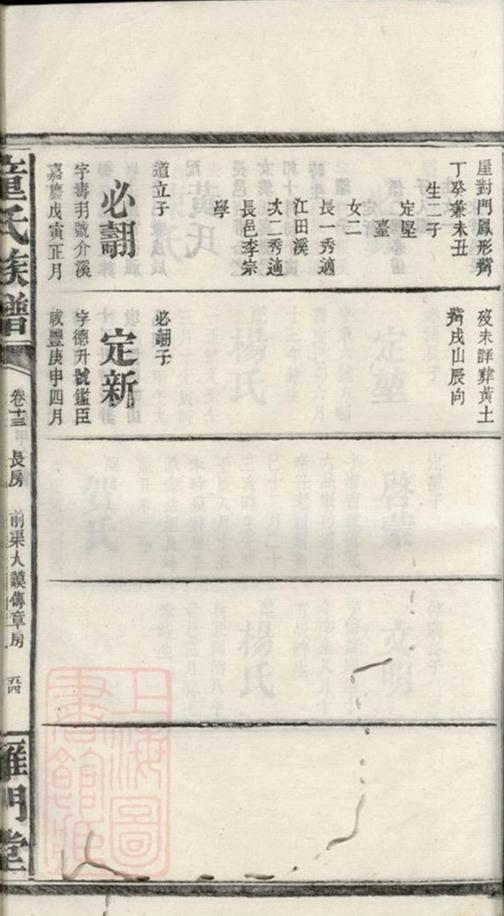 屋對門鳳形嘴
丁癸兼未丑
生二子
定堅
定臺
女二
長一秀適
江田溪
次二秀適
長邑李宗
學
道立子
必翮
字壽羽號介溪
嘉慶戊寅正月
歿未詳葬黃土
嘴戌山辰向
必翮子
定新
字德升號鑑臣
咸豐庚申四月
童氏族譜
卷十三
長房
前渠人謨傳章房
雁門堂
上海圖書館藏